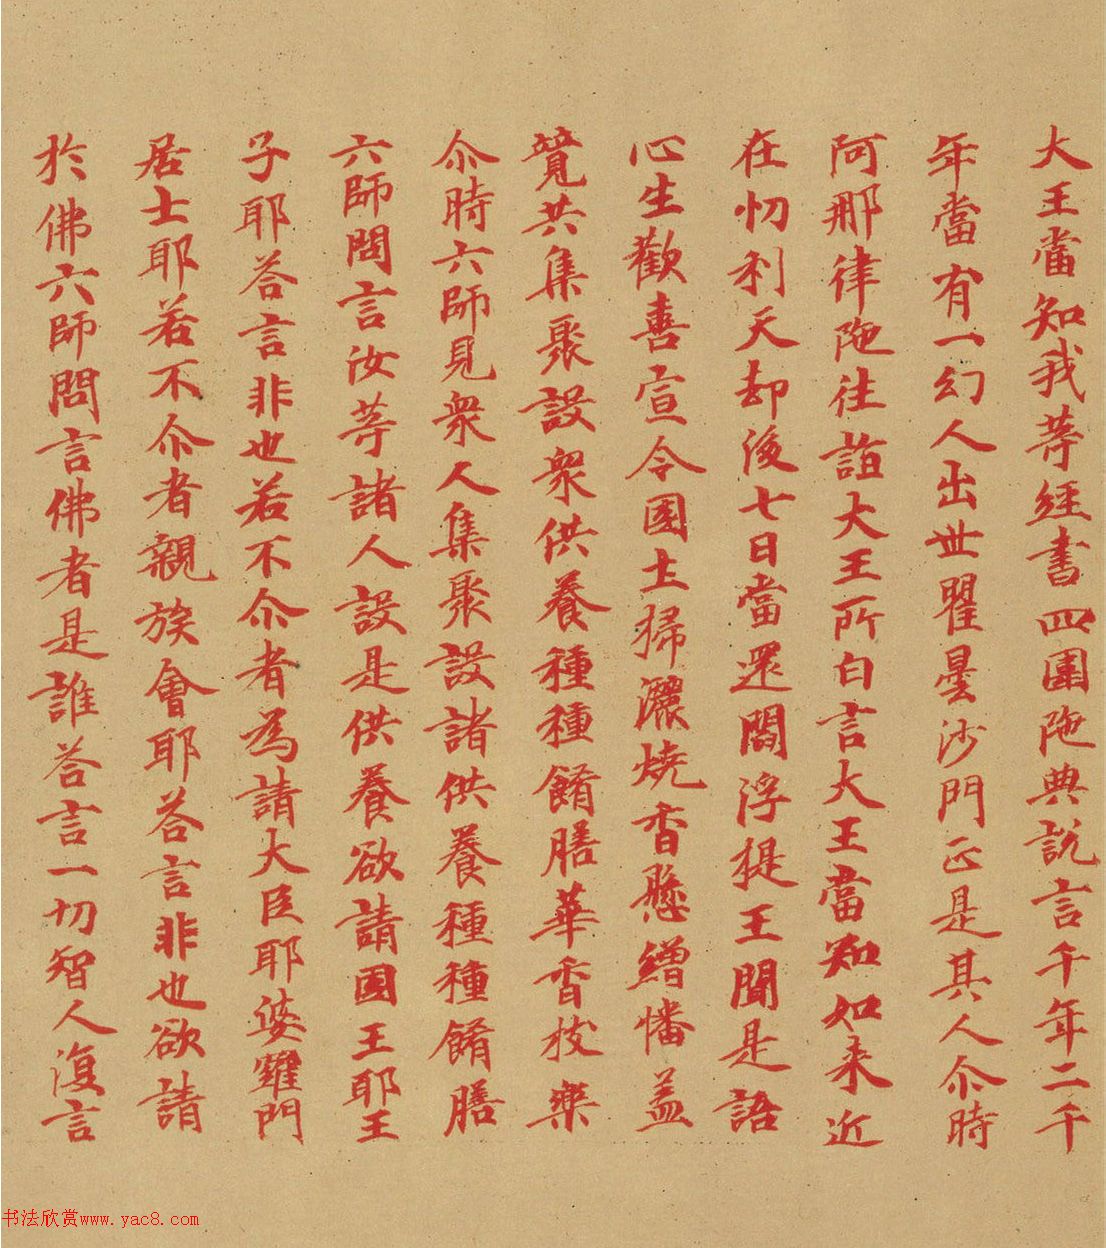 大王當知我等經書四圍陁典說言千年二千
年當有一幻人出世瞿曇沙門正是其人尒時
阿那律陁往詣大王所白言大王當知如来近
在忉利天却後七日當還閻浮提王聞是語
心生歡喜宣令國土掃灑燒香懸繒幡盖
覓共集聚設衆供養種種餚膳華香妓樂
尒時六師見衆人集聚設諸供養種種餚膳
六師問言汝等諸人設是供養欲請國王耶王
子耶荅言非也若不尒者為請大臣耶婆羅門
居士耶若不尒者親族會耶荅言非也欲請
於佛六師問言佛者是誰荅言一切智人復言
书法欣赏www.yac8.com